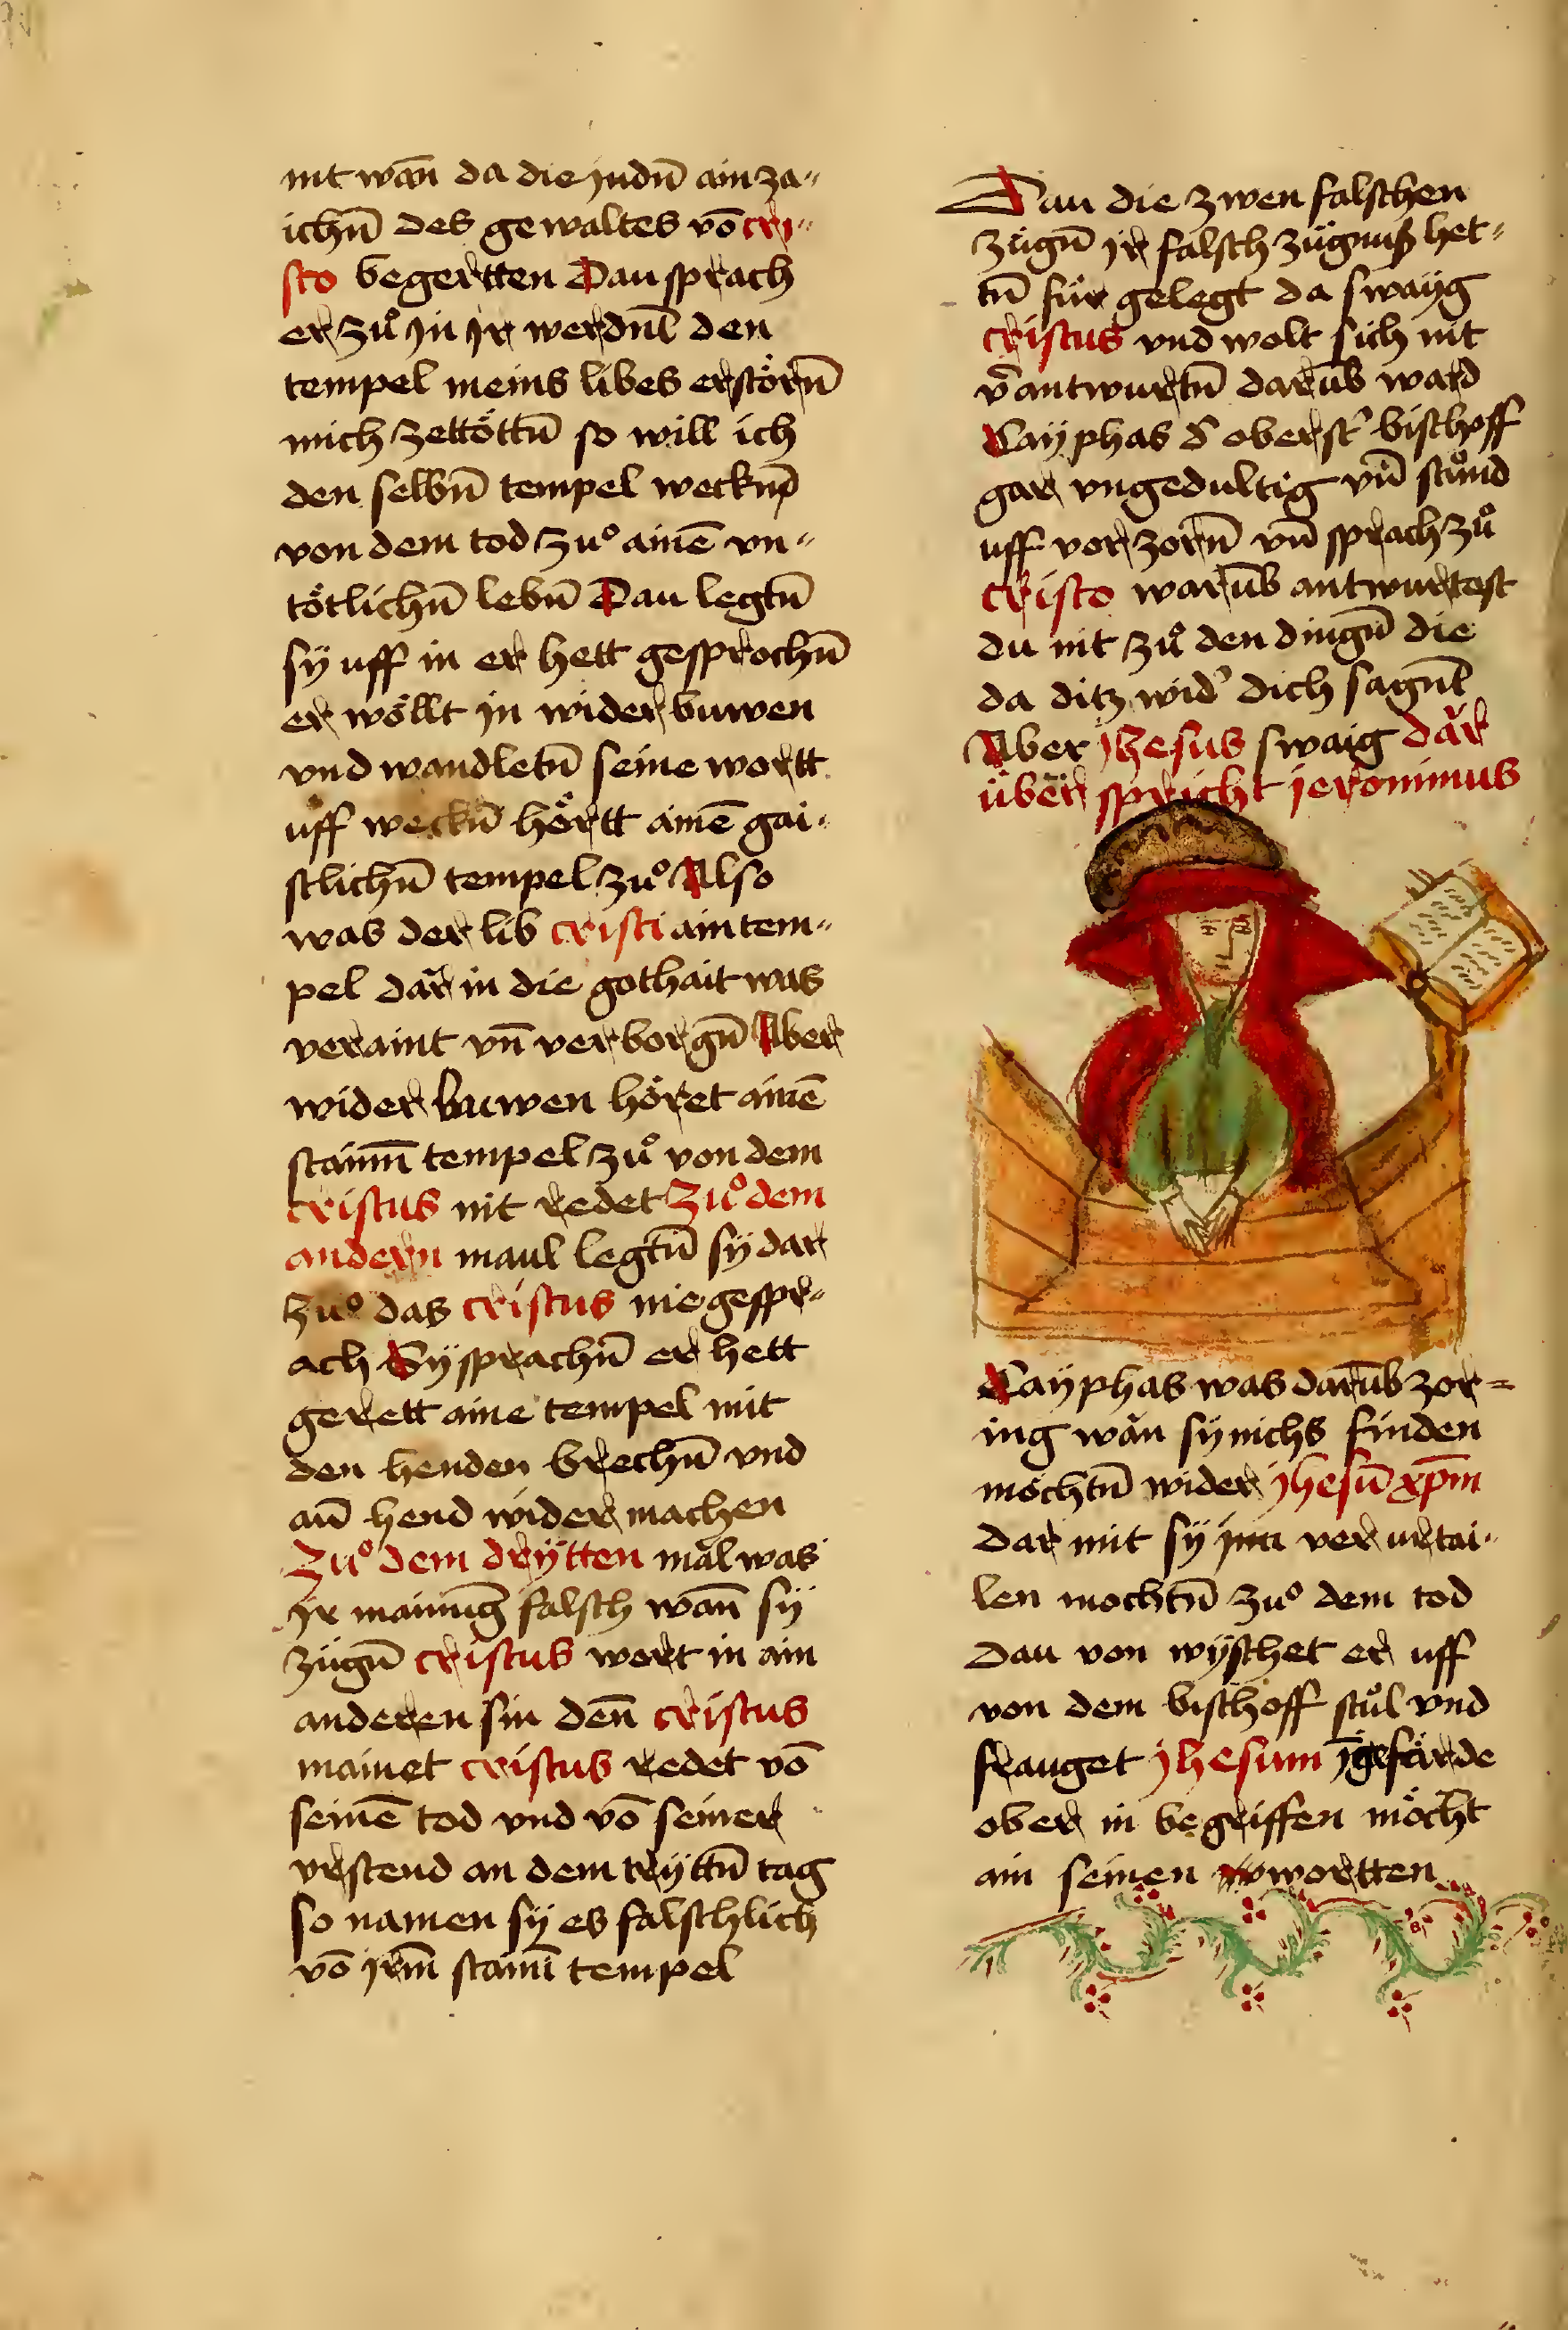 nit wan̄ da die judn̄ ain za"
ichn̄ des gewaltes vō cri"
sto begertten Dau sprach
er zů jn jr werdnt den
tempel meins libes erstörn̄
mich zettöttn̄ so will ich
den selbn̄ tempel weckn̄
von dem tod zuͦ ainē vn"
tötlichn̄ lebn̄ Dau legtn̄
sÿ uff in er hett gesprochn̄
er wöllt jn wider buwen
vnd wandletn̄ seine wortt
uff weckn̄ hörtt ainē gai"
stlichn̄ tempel zuͦ Also
was der lib cristi ain tem"
pel dar in die gothait was
veraint vn̄ verborgn̄ Aber
wider buwen höret ainē
stainin̄ tempel zů von dem
cristus nit redet Zuͦ dem
andern maul legtn̄ sÿ dar
zuͦ das cristus nie gespr"
ach Sÿ sprachn̄ er hett
gerett aine tempel mit
den henden brechn̄ vnd
an̄ hend wider machen
Zuͦ dem drÿtten mal was
jr mainung falsch wan̄ sÿ
zügn̄ cristus wort in ain
anderen sin den̄ cristus
mainet cristus redet vō
seinē tod vnd vō seiner
vrstend an dem trÿttn̄ tag
so namen sÿ es falschlich
vō jrm̄ stainī tempel
Dau die zwen falschen
zügn̄ jr falsch zügnuß het"
tn̄ für gelegt da swaÿg
cristus vnd wolt sich nit
v̄antwurtn̄ darūb ward
Caÿphas d' oberst' bischoff
gar vngedultig vn̄ stůnd
uff vor zorn̄ vn̄ sprach zů
cristo warūb antwurtest
du nit zů den dingn̄ die
da ditz wid' dich sagnt
Aber jhesus swaig dar
über spricht jeronimus
Caÿphas was darūb zor=
ing wän sÿ nichs finden
möchtn̄ wider jhesū xp̄m
dar mit sÿ jnn ver urtai"
len mochtn̄ zuͦ dem tod
Dau von wÿschet er uff
von dem bischoff stůl vnd
frauget jhesum jgefärde
ober in begriffen möcht
ain seinen wortten